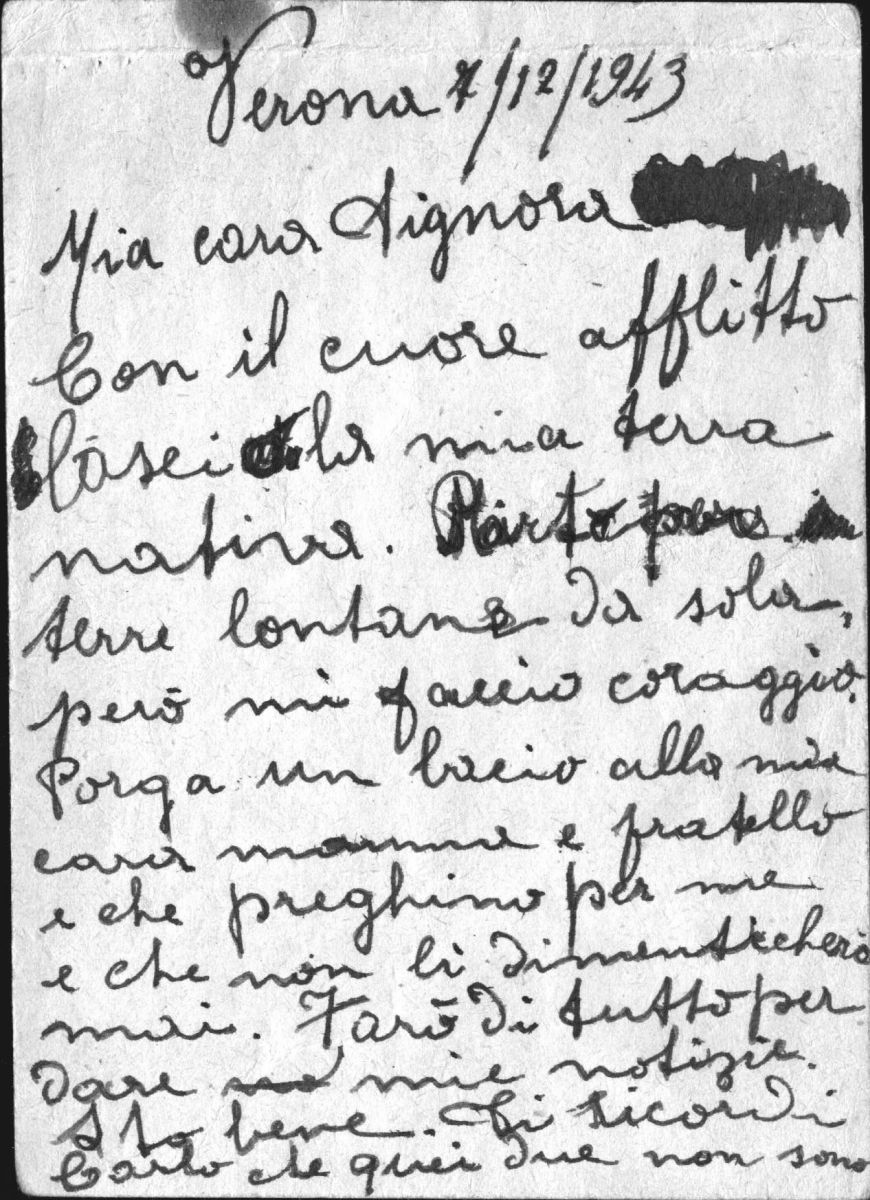 Verona 7/12/1943
Mia cara Signora
Con il cuore afflitto
lascio la mia terra
nativa. Parto per
terre lontane da sola,
però mi faccio coraggio.
Porga un bacio alla mia
cara mamma e fratello
e che preghino per me
e che non li dimenticherò
mai. Farò di tutto per
dare mie notizie.
Sto bene. Si ricordi
Carlo che quei due non sono